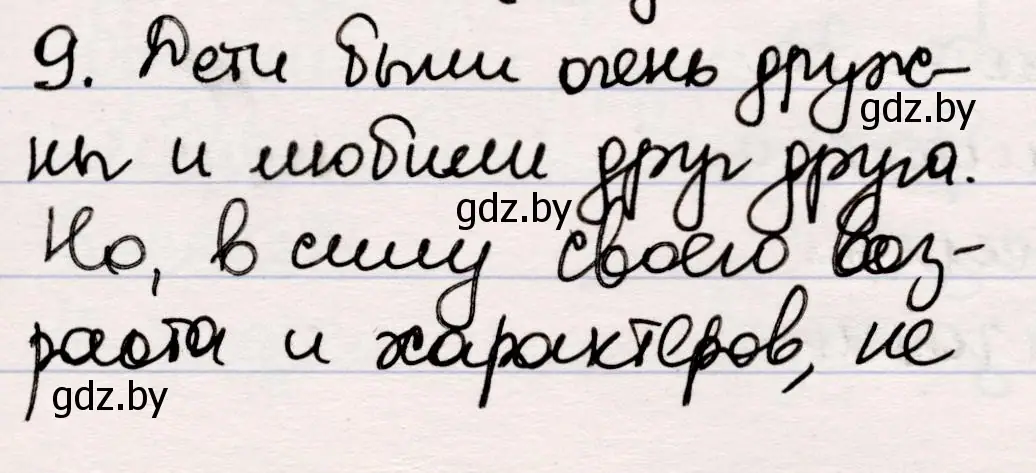 9. Дети были очень друж-
gdz.by
ны и любили друг друга.
gdz.by
Но, в силу своего воз-
раста и характеров, не
gdz.by